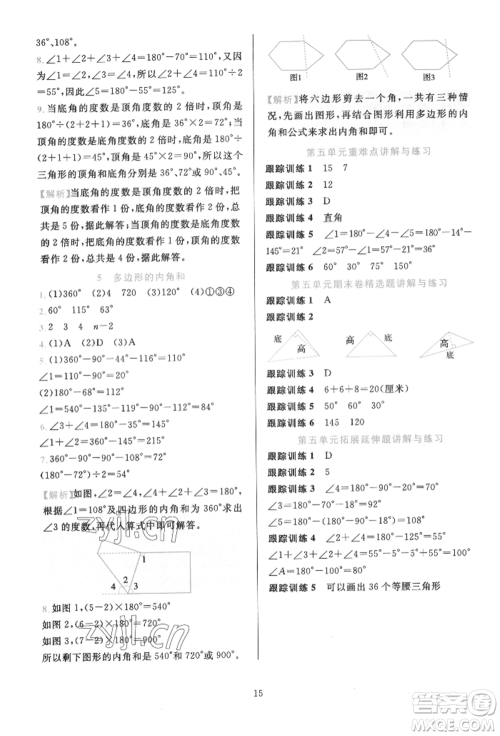 36°、108°。
8. ∠1+∠2+∠3+∠4=180°-70°=110°，
因为∠1=∠2，∠3=∠4，所以∠1+∠4=110°÷
2=55°，∠5=180°-55°=125°。
9. 当底角的度数是顶角度数的 2 倍时，顶角是
180°÷(2+2+1)=36°，底角是 36°×2=72°。
当顶角的度数是底角度数的 2 倍时，底角是
180°÷(1+1+2)=45°，顶角是 45°×2=90°。这个
三角形的顶角是 36°或 90°。
【解析】当底角的度数是顶角的度数的 2 倍时，把
顶角的度数看作 1 份，底角的度数看作 2 份，度
数总共是 5 份，据此解答。当顶角的度数是底角的
度数的 2 倍时，把底角的度数看作 1 份，顶角的度
数看作 2 份，总共是 4 份，据此解答。
5 多边形的内角和
1. (1)360° (2)4 720 (3)120° (4)①③④
2. 60° 115° 63°
3. 2 3 4 n-2 4. (1)A (2)D
5. (1)360°-50°-90°-110°=110°
∠1=180°-110°=70°
(2)∠3+∠4=180°-108°=72°
∠1+∠2=360°-72°=288°
6. ∠1=540°-115°×3-90°=105°
∠2=180°-105°=75°
7. ∠1=(5-2)×180°÷5=108°
(180°-∠2)÷2=108°-∠2，∠2=36°
【解析】如图，∠3=(180°-∠2)÷2，∠3=∠1-∠2，
根据∠1=108°及四边形的内角和是 360°，求出
∠3 的度数，再代入算式中即可解答。
1
4 2 3
8. 如图 1，(5-2)×180°=540°
如图 2，(6-2)×180°=720°
如图 3，(7-2)×180°=900°
所以剩下图形的内角和是 540°或 720°或 900°。
图1 图2 图3
【解析】将六边形剪去一个角，一共有三种情
况，画出图形，再结合图形利用多边形的内
角和公式来求出内角和即可。
第五单元重难点讲解与练习
跟踪训练 1 15 7
跟踪训练 2 12
跟踪训练 3 D
跟踪训练 4 直角
跟踪训练 5 ∠1=180°-(180°-145°-
145°=21°
跟踪训练 6 55° 30° 45°
第五单元期末卷精选题讲解与练习
跟踪训练 1 B
跟踪训练 2
底 高 高 底 高
跟踪训练 3 D
跟踪训练 4 6+6+8=20(厘米)
跟踪训练 5 50° 130°
第五单元拓展延伸题讲解与练习
跟踪训练 1 D
跟踪训练 2 5
跟踪训练 3 360° 360°
跟踪训练 4 ∠1=180°-90°-35°=55°
∠1+∠2+∠4=55°-5°-5°-5°=40°
∠2=180°-90°-55°=35°
跟踪训练 5 可以画出 36 个等腰三角形
zyjl.cn
zyjl.cn
15
答案圈
MXQE.COM